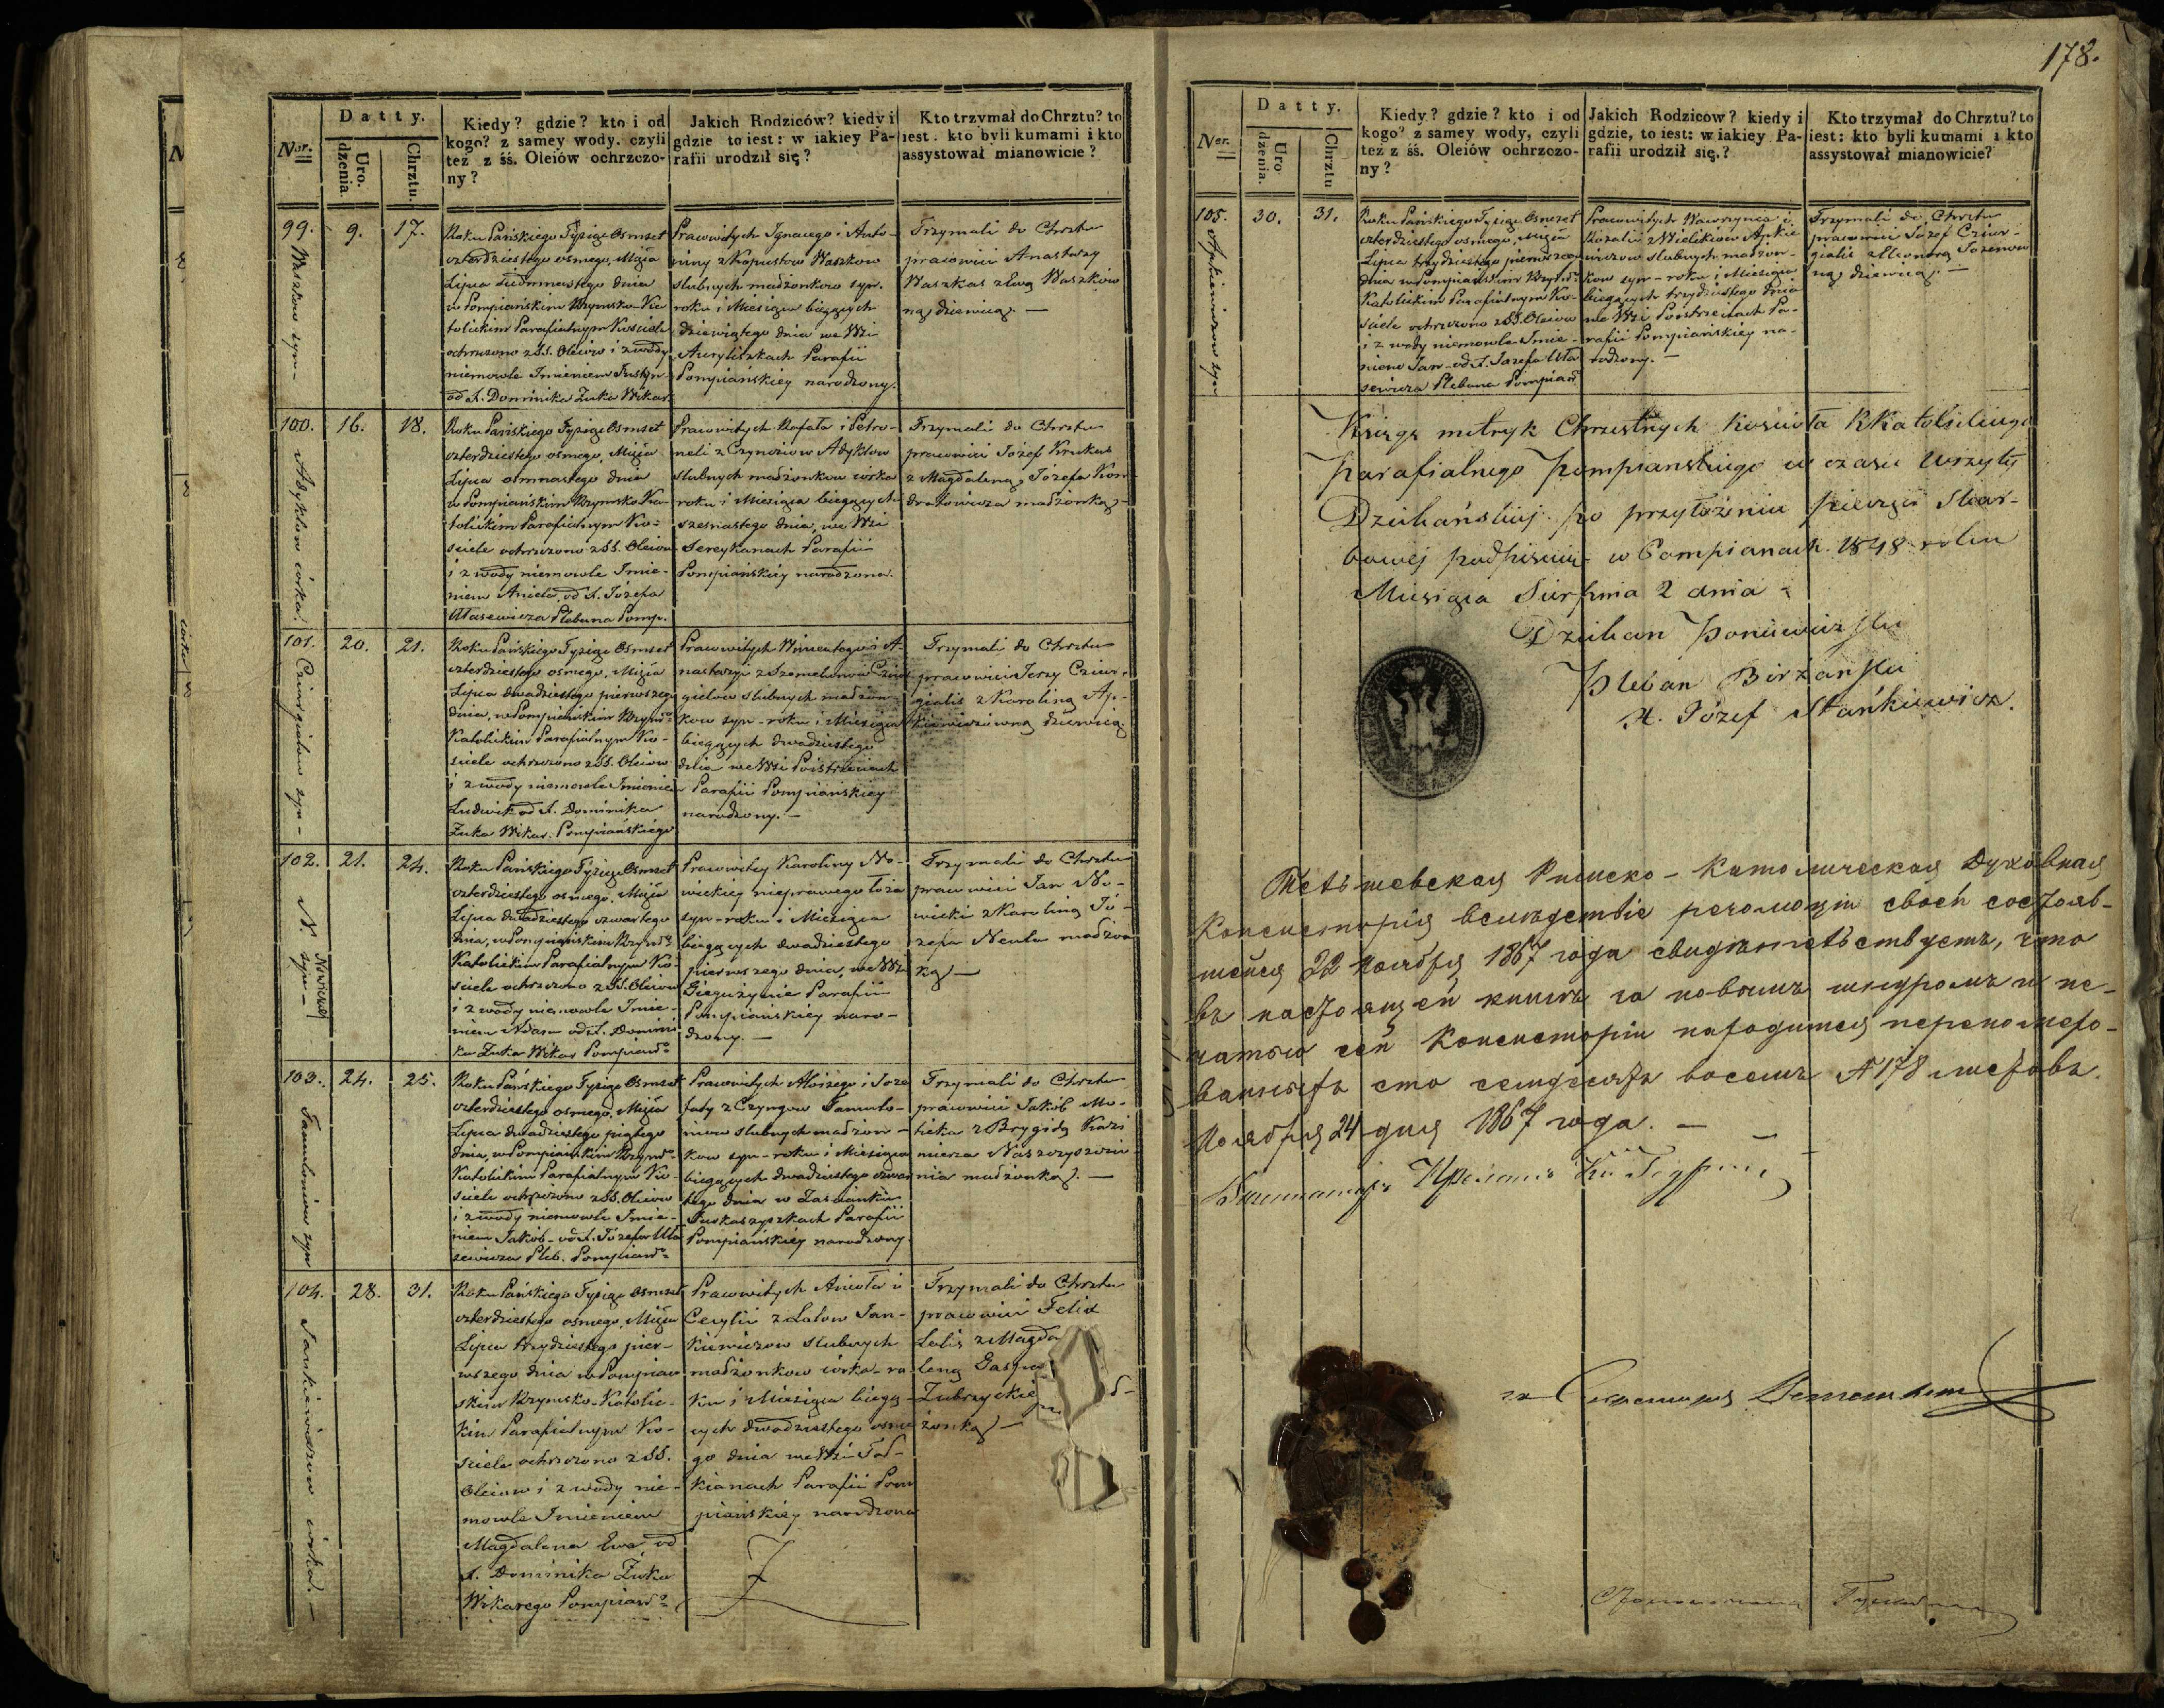 178.
Datty.
Nor.
Uro.
dzenia.
Chrztu.
Kiedy? gdzie? kto i od
kogo? z samey wody, czyli
też z śś. Oleiów ochrzczo-
ny?
Jakich Rodziców? kiedy i
gdzie to iest: w iakiey Pa-
rafii urodził się?
Kto trzymał do Chrztu? to
iest. kto byli kumami i kto
assystował mianowicie?
99.
Waszkow syn -
9.
17.
Roku Pańskiego Tysiąc Osmset
czterdziestego osmego, Miesiąca
Lipca siedmnastego dnia
w Pompiańskim Rzymsko-Ka-
tolickim Parafialnym Kościele
ochrzczono z SS. Oleiów i z wody
niemowle Imieniem Justyn
od X. Dominika Żuka Wikar.
Pracowitych Ignacego i Anto-
niny z Kapustow Waszkow
slubnych madżonkow syn.
roku i Miesiąca bieżących
dziewiątego dnia we Wsi
Auryliszkach Parafii
Pompiańskiey narodzony.
Trzymali do Chrztu
pracowici Anastazy
Waszkas z Ewą Waszków
ną dziewicą. -
100.
Adyklow córka.
16.
18.
Roku Pańskiego Tysiąc Osmset
czterdziestego osmego, Miesiąca
Lipca osmnastego dnia
w Pompiańskim Rzymsko Ka-
tolickim Parafialnym Ko-
ściele ochrzczono z SS. Oleiow
i z wody niemowle Imie-
niem Aniela, od X. Józefa
Własewicza Plebana Pomp.
Pracowitych Rafała i Petro-
neli z Czynciow Adyklow
slubnych madżonkow córka
roku i Miesiąca bieżących
szesnastego dnia, we Wsi
Sereykanach Parafii
Pompiańskiey narodzona.
Trzymali do Chrztu
pracowici Józef Krukas
z Magdaleną, Józefa Kon
dratowicza madżonką -
101.
Cziurgielow syn -
20.
21.
Roku Pańskiego Tysiąc Osmset
czterdziestego osmego, Miesiąca
Lipca dwadziestego pierwszego
dnia, w Pompiańskim Rzyms
Katolickim Parafialnym Ko-
ściele ochrzczono z SS. Oleiow
i z wody niemowle Imieniem
Ludwik od X. Dominika
Żuka Wikar. Pompiańskiego
Pracowitych Wincentego i A-
nastazyi z Szomelunow Cziur
gielow slubnych madżon-
kow syn - roku i Miesiąca
bieżących dwadziestego
dnia we Wsi Poistrzeciach
Parafii Pompiańskiey
narodzony. -
Trzymali do Chrztu
pracowici Jerzy Cziur-
gialis z Karoliną Ap-
kiewiczowną dziewicą.
102.
N.
Nowickiey
syn -
21.
24.
Roku Pańskiego Tysiąc Osmset
czterdziestego osmego, Miesiąca
Lipca dwadziestego czwartego
dnia, w Pompiańskim Rzyms
Katolickim Parafialnym Ko-
ściele ochrzczono z SS. Oleiow
i z wody niemowle Imie-
niem Adam od X. Domini
ka Żuka Wikar Pompiań
Pracowitey Karoliny No-
wickiey nieprawego łoża
syn - roku i Miesiąca
bieżących dwadziestego
pierwszego dnia, we Wsi
Giegużynie Parafii
Pompiańskiey naro-
dzony. -
Trzymali do Chrztu
pracowici Jan No-
wicki z Karoliną Jó-
zefa Neula madżon
ką -
103.
24.
25.
Roku Pańskiego Tysiąc Osmset
czterdziestego osmego, Miesiąca
Lipca dwadziestego piątego
dnia, w Pompiańskim Rzyms
Katolickim Parafialnym Ko-
ściele ochrzczono z SS. Oleiow
i z wody niemowle Imie-
niem Jakób - od X. Józefa Wła
sewicza Pleb. Pompiańs
Pracowitych Aloizego i Joze
faty z Czyngow
slubnych madżon -
kow syn - roku i Miesiąca
bieżących dwadziestego czwar
tego dnia w Zascianku
Parafii
Pompiańskiey narodzony
Trzymali do Chrztu
pracowici Jakób Mo-
lieka z Brygidą Kazi
mierza
nia madżonką. -
104.
Jankiewiczow córka. -
28.
31.
Roku Pańskiego Tysiąc Osmset
czterdziestego osmego, Miesiąca
Lipca trzydziestego pier-
wszego dnia w Pompiań
skim Rzymsko-Katolic-
kim Parafialnym Ko-
ściele ochrzczono z SS.
Oleiow i z wody nie-
mowle Imieniem
Magdalena Ewa, od
X. Dominika Żuka
Wikarego Pompiańs
Pracowitych Anioła i
Cecylii z Lalow Jan-
kiewiczow slubnych
madżonkow córka - ro
ku i Miesiąca bieżą-
cych dwadziestego osme
go dnia we Wsi Tod-
kianach Parafii Pom
piańskiey narodzona
Trzymali do Chrztu
pracowici Felix
Lalis z Magda
leną Gaspra
Zubrzyckie
żonką -
Datty.
Nor.
Uro
dzenia.
Chrztu
Kiedy? gdzie? kto i od
kogo? z samey wody, czyli
też z śś. Oleiów ochrzczo-
ny?
Jakich Rodzicow? kiedy i
gdzie, to iest: w iakiey Pa-
rafii urodził się.?
Kto trzymał do Chrztu? to
iest: kto byli kumami i kto
assystował mianowicie?
105.
Apkiewiczow syn
30.
31.
Roku Pańskiego Tysiąc Osmset
czterdziestego osmego, Miesiąca
Lipca trzydziestego pierwszego
dnia w Pompiańskim Rzyms
Katolickim Parafialnym Ko-
ściele ochrzczono z SS. Oleiow
i z wody niemowle Imie-
niem Jan - od X. Jozefa Wła
sewicza Plebana Pompiań
Pracowitych Wawrzynca i
Rozalii z Wielikiow Apkie
wiczow slubnych madżon-
kow syn - roku i Miesiąca
bieżących trzydziestego dnia
we Wsi Poistrzeciach Pa-
rafii Pompiańskiey na-
rodzony. -
Trzymali do Chrztu
pracowici Józef Cziur-
gialis z Eleonorą
ną dziewicą. -
Księga metryk Chrzestnych kościoła RKatolickiego
Parafialnego Pompianskiego w czasie Wizyty
Dziekańskiej po przyłożeniu pieczęci Skar-
bowej podpisuię w Pompianach 1848 roku
Miesiąca Sierpnia 2 dnia -
Dziekan Poniewiezski
Pleban Birżanski
X. Józef Stańkiewicz.
Тельшевская Римско-Католическая Духовная
Консисторія вследствіе резолюціи своей состояв-
шейся 22 Ноября 1867 года свидѣтельствуетъ, что
въ настоящей книгѣ за новымъ шнуромъ и пе-
чатью сей Консисторіи находится перенумеро-
ванныхъ сто семдесятъ восемь № 178 листовъ.
Ноября 24 дня 1867 года. -
За Секретаря